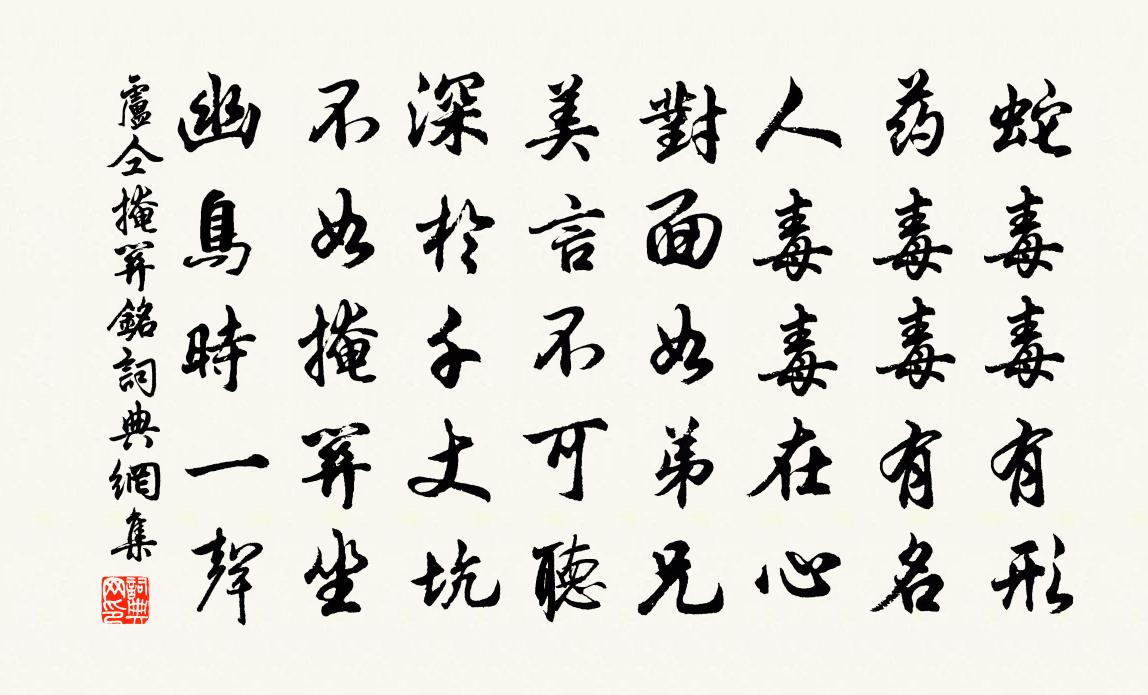 蛇毒毒有形
药毒毒有名
人毒毒在心
對面如弟兄
美言不可聽
深於千丈坑
不如掩關坐
幽鳥時一聲
盧仝掩關銘詞典網集
詞典網印